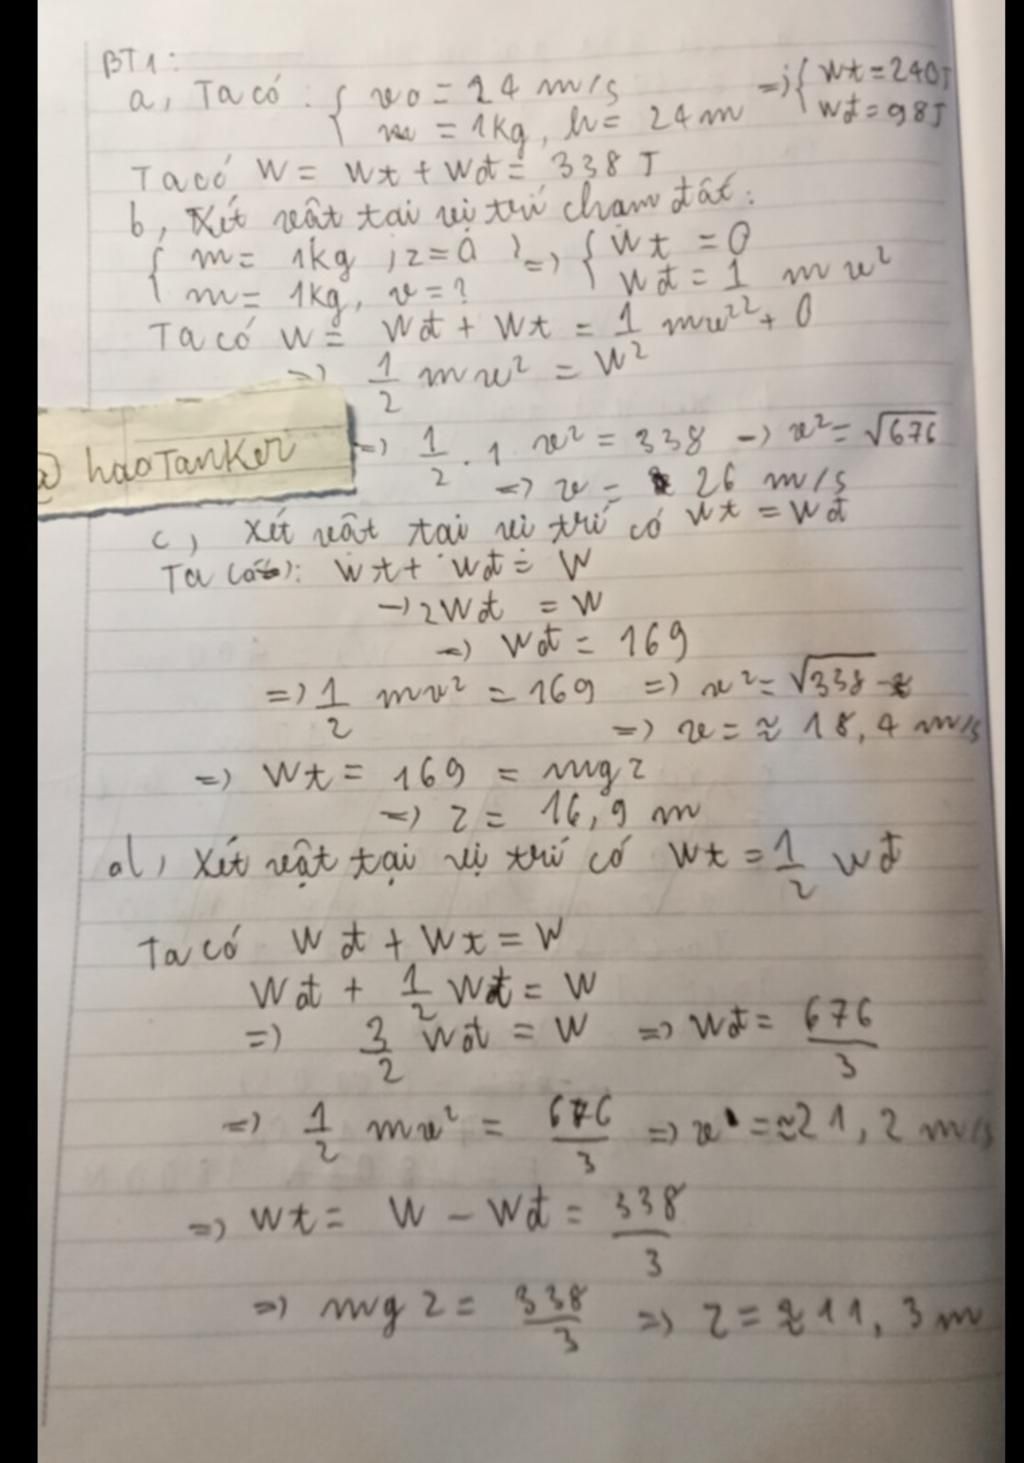 BT1:
a, Ta có: { v0 = 24 m/s => { Wt = 240J
m = 1kg, h = 24m Wđ = 98J
Ta có W = Wt + Wđ = 338 J
b, Xét vật tại vị trí chạm đất:
{ m = 1kg ; z = 0 } => { Wt = 0
m = 1kg, v = ? Wđ = 1 m v²
Ta có W = Wđ + Wt = 1 mv²² + 0
=> 1/2 mv² = W²
@haoTanker => 1/2 . 1 v² = 338 -> v² = √676
=> v = 26 m/s
c, Xét vật tại vị trí có Wt = Wđ
Ta có: Wt + Wđ = W
-> 2Wđ = W
-> Wđ = 169
=> 1/2 mv² = 169 => v² = √338
=> v = ≈ 18,4 m/s
=> Wt = 169 = mgz
=> z = 16,9 m
d, Xét vật tại vị trí có Wt = 1/2 Wđ
Ta có Wđ + Wt = W
Wđ + 1/2 Wđ = W
=> 3/2 Wđ = W => Wđ = 676/3
=> 1/2 mv² = 676/3 => v = ≈21,2 m/s
=> Wt = W - Wđ = 338/3
=> mgz = 338/3 => z = ≈11,3 m